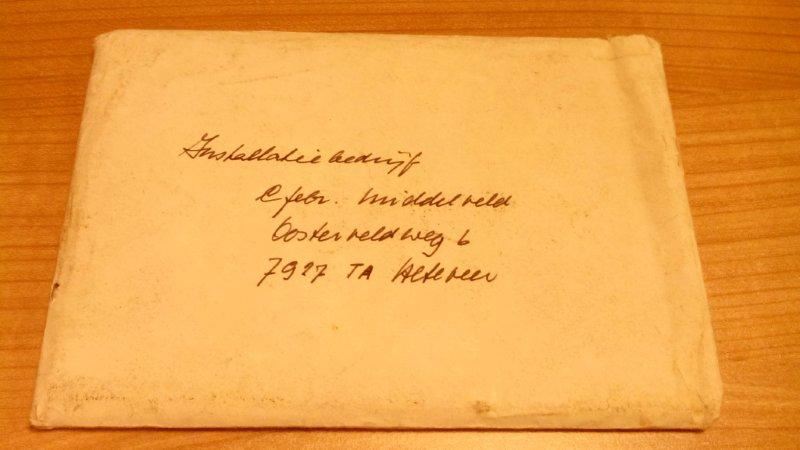 Installatiebedrijf
Gebr. Middelveld
Oosterveldweg 6
7927 TA Alteveer